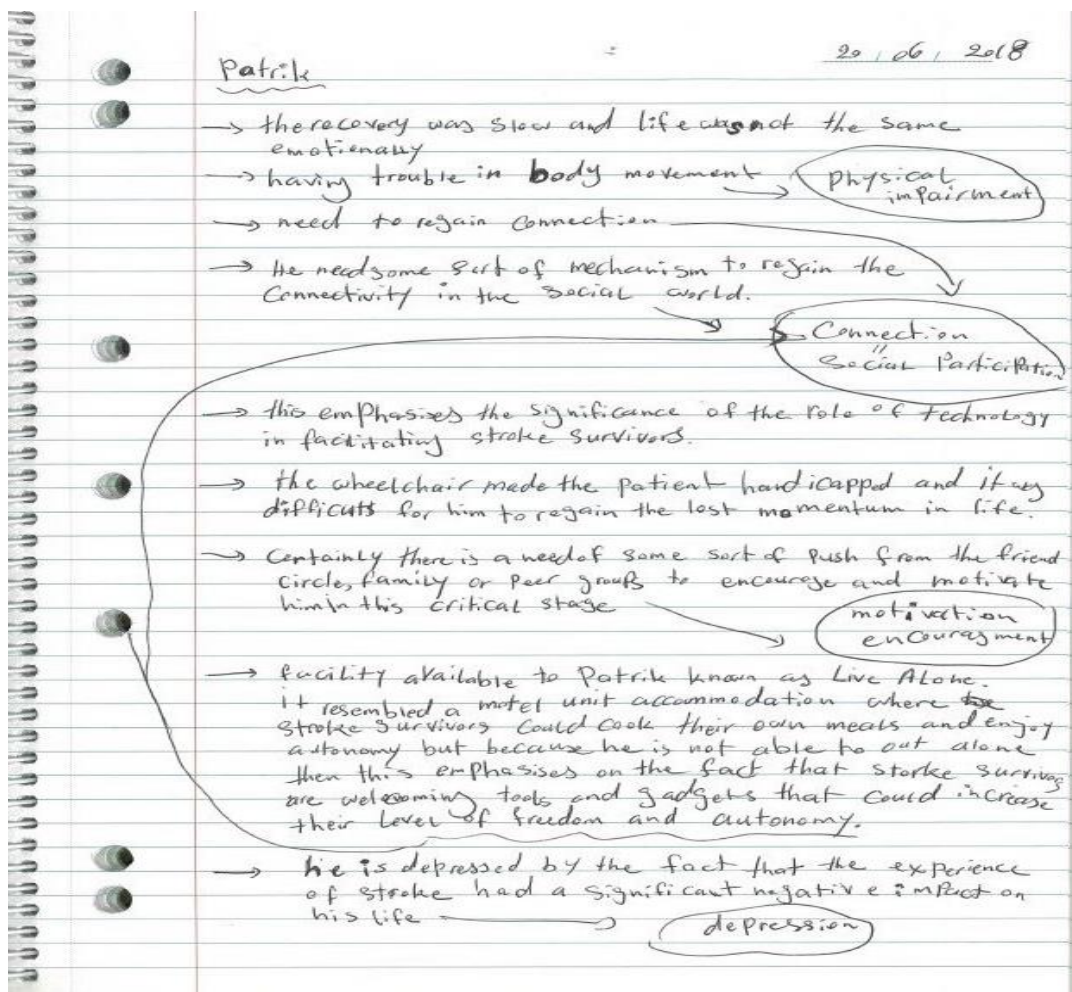 20, 06, 2018
Patrik
→ the recovery was slow and life was not the same
emotionally
→ having trouble in body movement → Physical
impairment
→ need to regain connection
→ He need some sort of mechanism to regain the
Connectivity in the social world.
Connection
"
Social Participation
→ this emphasises the significance of the role of technology
in facilitating stroke survivors.
→ the wheelchair made the patient handicapped and it was
difficult for him to regain the lost momentum in life.
→ Certainly there is a need of some sort of Push from the friend
circle, family or Peer groups to encourage and motivate
him in this critical stage
motivation
encouragment
→ facility available to Patrik known as Live Alone.
it resembled a motel unit accommodation where
stroke survivors could cook their own meals and enjoy
autonomy but because he is not able to out alone
then this emphasises on the fact that storke survivos
are welcoming tools and gadgets that could increase
their level of freedom and autonomy.
→ he is depressed by the fact that the experience
of stroke had a significant negative impact on
his life → depression